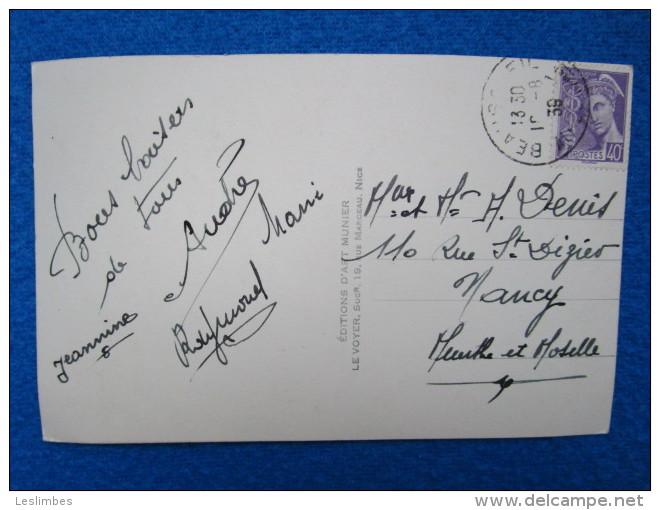 Bons baisers
de tous
André
Jeannine
Raymond
ÉDITIONS D'ART MUNIER
LE VOYER, SUCR, 19, RUE MARCEAU, NICE
Mme et Mr H. Denis
110 Rue St Dizier
Nancy
Meurthe et Moselle
13 30
39
POSTES 40
Leslimbes
delcampe.net